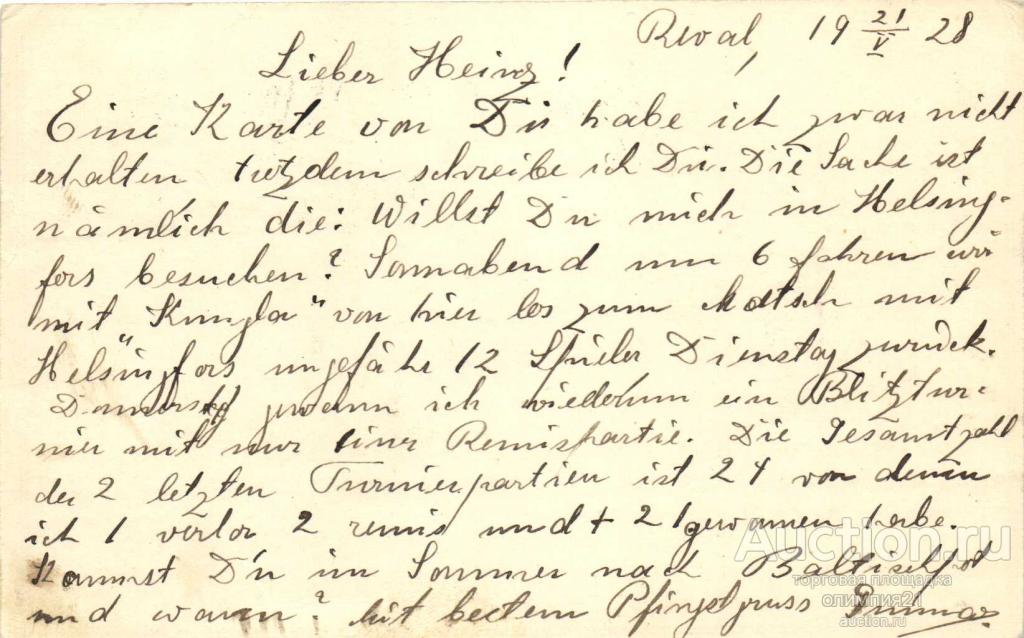 Reval, 19 21/V 28
Lieber Heinz!
Eine Karte von Dir habe ich zwar nicht
erhalten trotzdem schreibe ich Dir. Die Sache ist
nämlich die: Willst Du mich in Helsing-
fors besuchen? Sonnabend um 6 fahren wir
mit „Kungla" von hier los zum Matsch mit
Helsingfors ungefähr 12 Spieler Dienstag zurück.
Donnerstag gewann ich wiederum ein Blitztur-
nier mit nur einer Remispartie. Die Gesamtzahl
der 2 letzten Turnierpartien ist 24 von denen
ich 1 verlor 2 remis und + 21 gewonnen habe.
Kommst Du im Sommer nach Baltischport
und wann? Mit bestem Pfingstgruss
Auction.ru
торговая площадка
олимпия21
auction.ru